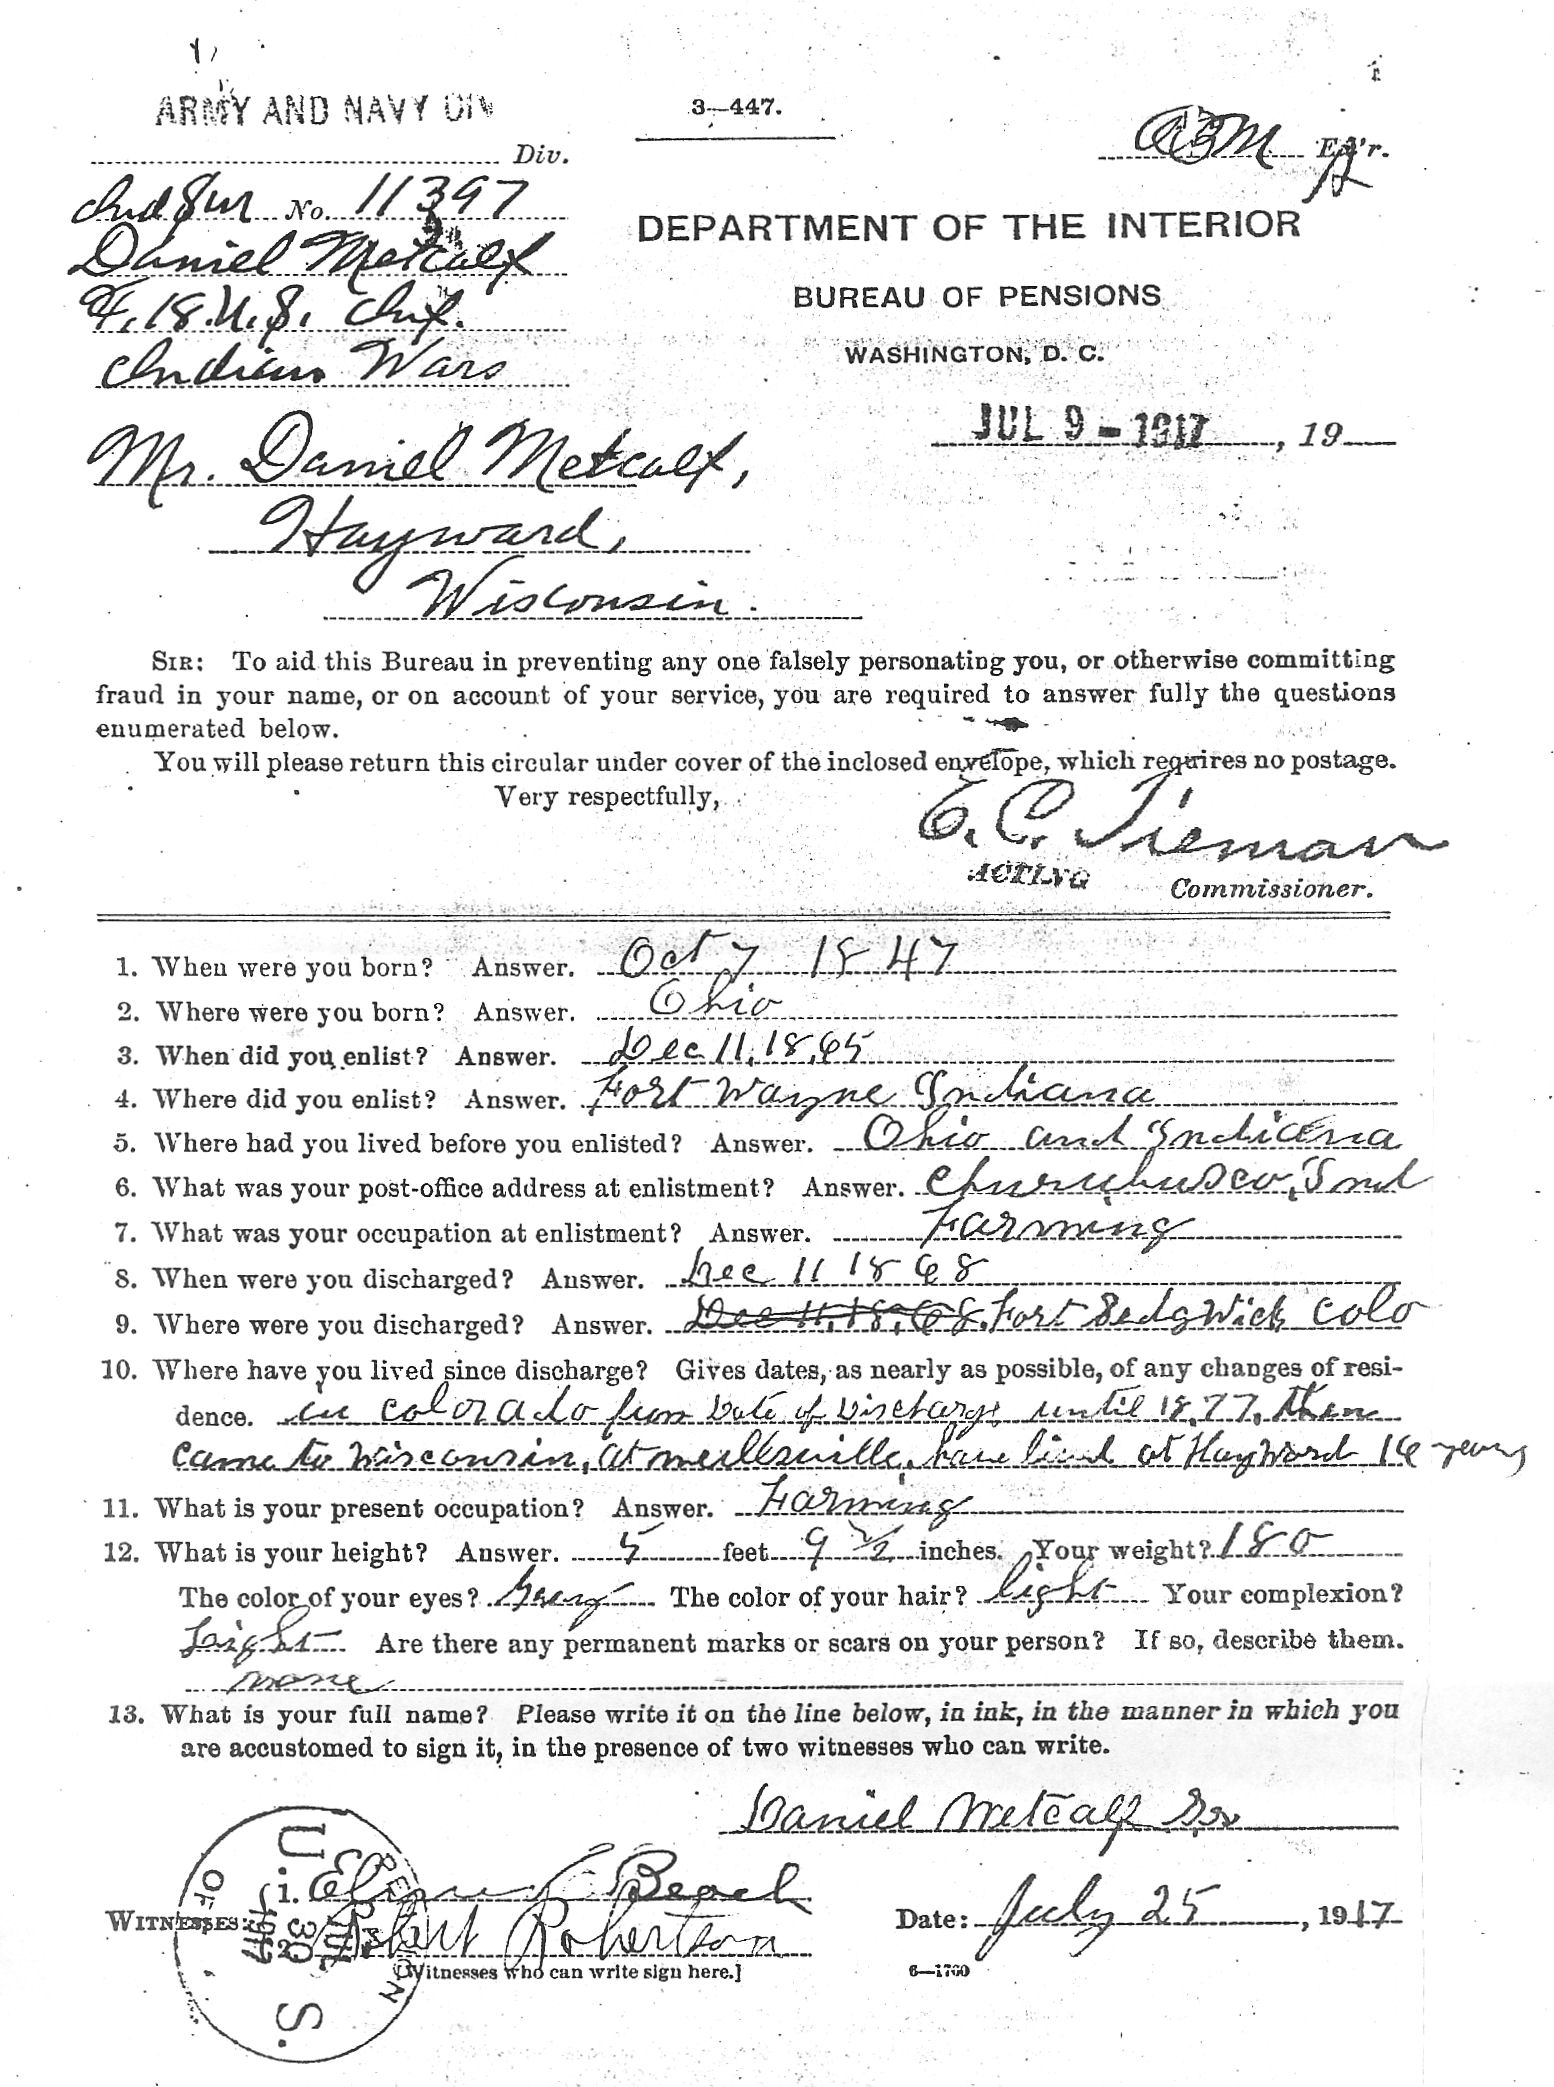 ARMY AND NAVY DIV
3—447.
Div.
Ex'r.
Ind Sur No. 11397
Daniel Metcalf
F, 18. U. S. Inf.
Indian Wars
DEPARTMENT OF THE INTERIOR
BUREAU OF PENSIONS
WASHINGTON, D. C.
JUL 9 - 1917, 19
Mr. Daniel Metcalf,
Hayward,
Wisconsin.
SIR: To aid this Bureau in preventing any one falsely personating you, or otherwise committing
fraud in your name, or on account of your service, you are required to answer fully the questions
enumerated below.
You will please return this circular under cover of the inclosed envelope, which requires no postage.
Very respectfully,
E. C. Tieman
ACTING Commissioner.
1. When were you born? Answer. Oct 7 1847
2. Where were you born? Answer. Ohio
3. When did you enlist? Answer. Dec 11, 18,65
4. Where did you enlist? Answer. Fort Wayne Indiana
5. Where had you lived before you enlisted? Answer. Ohio and Indiana
6. What was your post-office address at enlistment? Answer. Churubusco, Ind
7. What was your occupation at enlistment? Answer. Farming
8. When were you discharged? Answer. Dec 11 1868
9. Where were you discharged? Answer. Dec 11, 18,68. Fort Sedgwick Colo
10. Where have you lived since discharge? Gives dates, as nearly as possible, of any changes of resi-
dence. in Colorado from Date of Discharge until 18,77, then
came to Wisconsin, at have lived at Hayward 16 years
11. What is your present occupation? Answer. Farming
12. What is your height? Answer. 5 feet 9 1/2 inches. Your weight? 180
The color of your eyes? Grey The color of your hair? light Your complexion?
Light Are there any permanent marks or scars on your person? If so, describe them.
none
13. What is your full name? Please write it on the line below, in ink, in the manner in which you
are accustomed to sign it, in the presence of two witnesses who can write.
Daniel Metcalf Sr
WITNESSES:
1. Beach
2. Robertson
[Witnesses who can write sign here.]
Date: July 25, 1917
6—1760
U. S. PENSION OF
JUL 30 1917